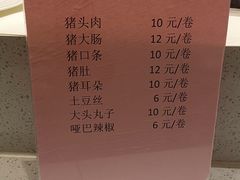 猪头肉 10 元/卷
猪大肠 12 元/卷
猪口条 10 元/卷
猪肚 12 元/卷
猪耳朵 10 元/卷
土豆丝 6 元/卷
大头丸子 10 元/卷
哑巴辣椒 6 元/卷